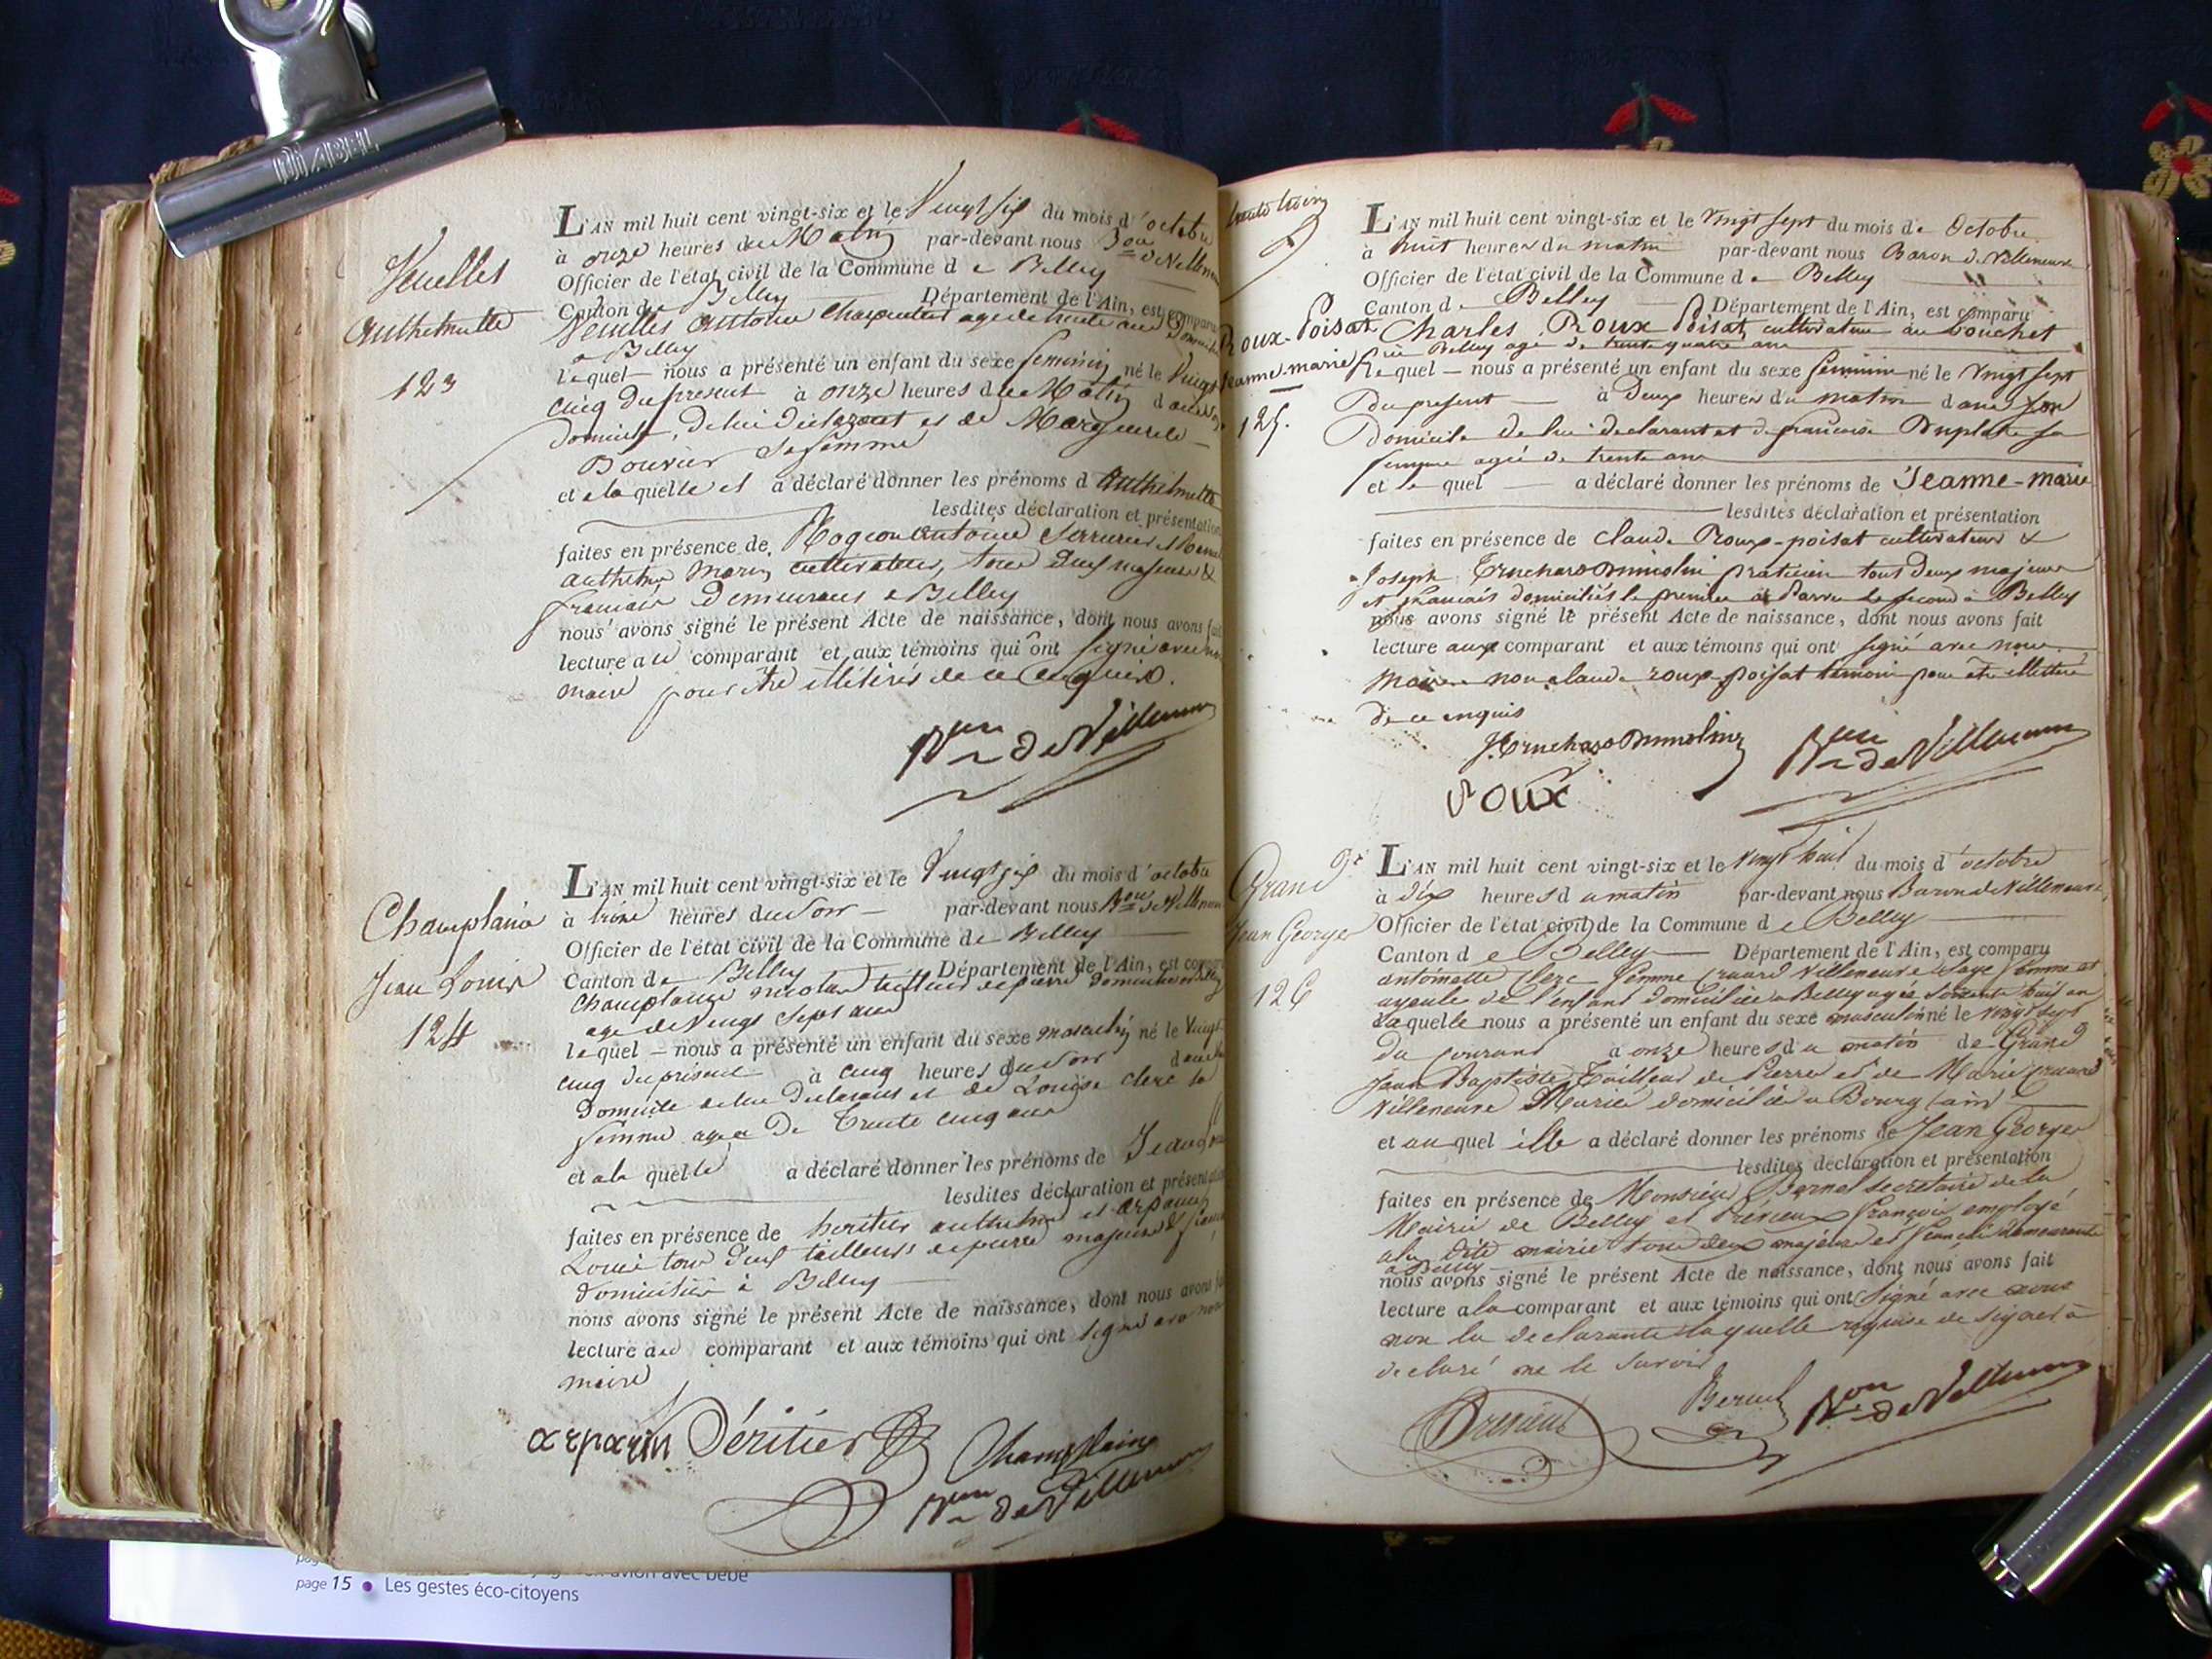 DIABEL
L'AN mil huit cent vingt-six et le Vingt six du mois d'octobre
à onze heures du Matin par-devant nous Bon de Villeneuve
Officier de l'état civil de la Commune de Belley
Canton de Belley Département de l'Ain, est comparu
Venelles
Anthelmette
123
Venelles Antoine Charpentier agé de trente ans Domicilié
a Belley
lequel nous a présenté un enfant du sexe feminin né le Vingt
cinq du present à onze heures du Matin dans son
domicile, de lui declarant et de Marguerite
Bouvier sa femme
et a la quelle il a déclaré donner les prénoms d'Anthelmette
lesdites déclaration et présentation
faites en présence de Antoine Serrurier et
Anthelme Marin cultivateur, tous deux majeurs &
français Demeurans a Belley
nous avons signé le présent Acte de naissance, dont nous avons fait
lecture au comparant et aux témoins qui ont signé avec nous
maire pour être illitérés de ce enquis.
Bon de Villeneuve
L'AN mil huit cent vingt-six et le Vingt six du mois d'octobre
à trois heures du soir par-devant nous Bon de Villeneuve
Officier de l'état civil de la Commune de Belley
Canton de Belley Département de l'Ain, est comparu
Champlaine
Jean Louis
124
Champlaine nicolas tailleur de pierre domicilié à Belley
age de Vingt sept ans
lequel nous a présenté un enfant du sexe masculin né le Vingt
cinq du présent à cinq heures du soir dans le
domicile de lui declarant et de Louise clerc sa
femme agee De Trente cinq ans
et a la quelle a déclaré donner les prénoms de Jean Louis
lesdites déclaration et présentation
faites en présence de heritier anthelme et arparin
Louis tous deux tailleurs de pierre majeurs & français
domiciliés à Belley
nous avons signé le présent Acte de naissance, dont nous avons fait
lecture au comparant et aux témoins qui ont signé avec nous
maire
arparin Déritier Champlaine
Bon de Villeneuve
L'AN mil huit cent vingt-six et le Vingt sept du mois de Octobre
à huit heures du matin par-devant nous Baron de Villeneuve
Officier de l'état civil de la Commune de Belley
Canton de Belley Département de l'Ain, est comparu
Roux-Poisat
Jeanne-marie
125.
Charles Roux Poisat cultivateur au bouchet
Belley agé de trente quatre ans
lequel nous a présenté un enfant du sexe féminin né le Vingt sept
Du present à Deux heures du matin dans son
Domicile de lui declarant et de francoise Duplatre sa
femme agée de trente ans
et le quel a déclaré donner les prénoms de Jeanne-marie
lesdites déclaration et présentation
faites en présence de claude Roux-poisat cultivateur &
Joseph Trucharddumolin praticien tous deux majeurs
et français domiciliés le premier à Parve le second à Belley
nous avons signé le présent Acte de naissance, dont nous avons fait
lecture aux comparant et aux témoins qui ont signé avec nous
Maire non claude roux-poisat témoin pour être illettré
de ce enquis
J. Trucharddumolin Bon de Villeneuve
roux
L'AN mil huit cent vingt-six et le vingt huit du mois d'octobre
à dix heures du matin par-devant nous Baron de Villeneuve
Officier de l'état civil de la Commune de Belley
Canton de Belley Département de l'Ain, est comparu
Grand
Jean Georges
126
antoinette clerc femme Villeneuve Sage femme et
ayeule de l'enfant domiciliée a Belley agée soixante huit ans
Laquelle nous a présenté un enfant du sexe masculin né le vingt sept
du courant à onze heures du matin de Grand
Jean Baptiste Tailleur de Pierre et de Marie
Villeneuve Mariés domiciliés a Bourg (ain)
et au quel elle a déclaré donner les prénoms de Jean Georges
lesdites déclaration et présentation
faites en présence de Monsieur Bernel secretaire de la
Mairie de Belley et Prerieux François employé
a la dite mairie tous deux majeurs et français demeurants
a Belley
nous avons signé le présent Acte de naissance, dont nous avons fait
lecture a la comparant et aux témoins qui ont signé avec nous
non la declarante laquelle requise de signer a
declaré ne le savoir
Bernel Bon de Villeneuve
page 15 • Les gestes éco-citoyens